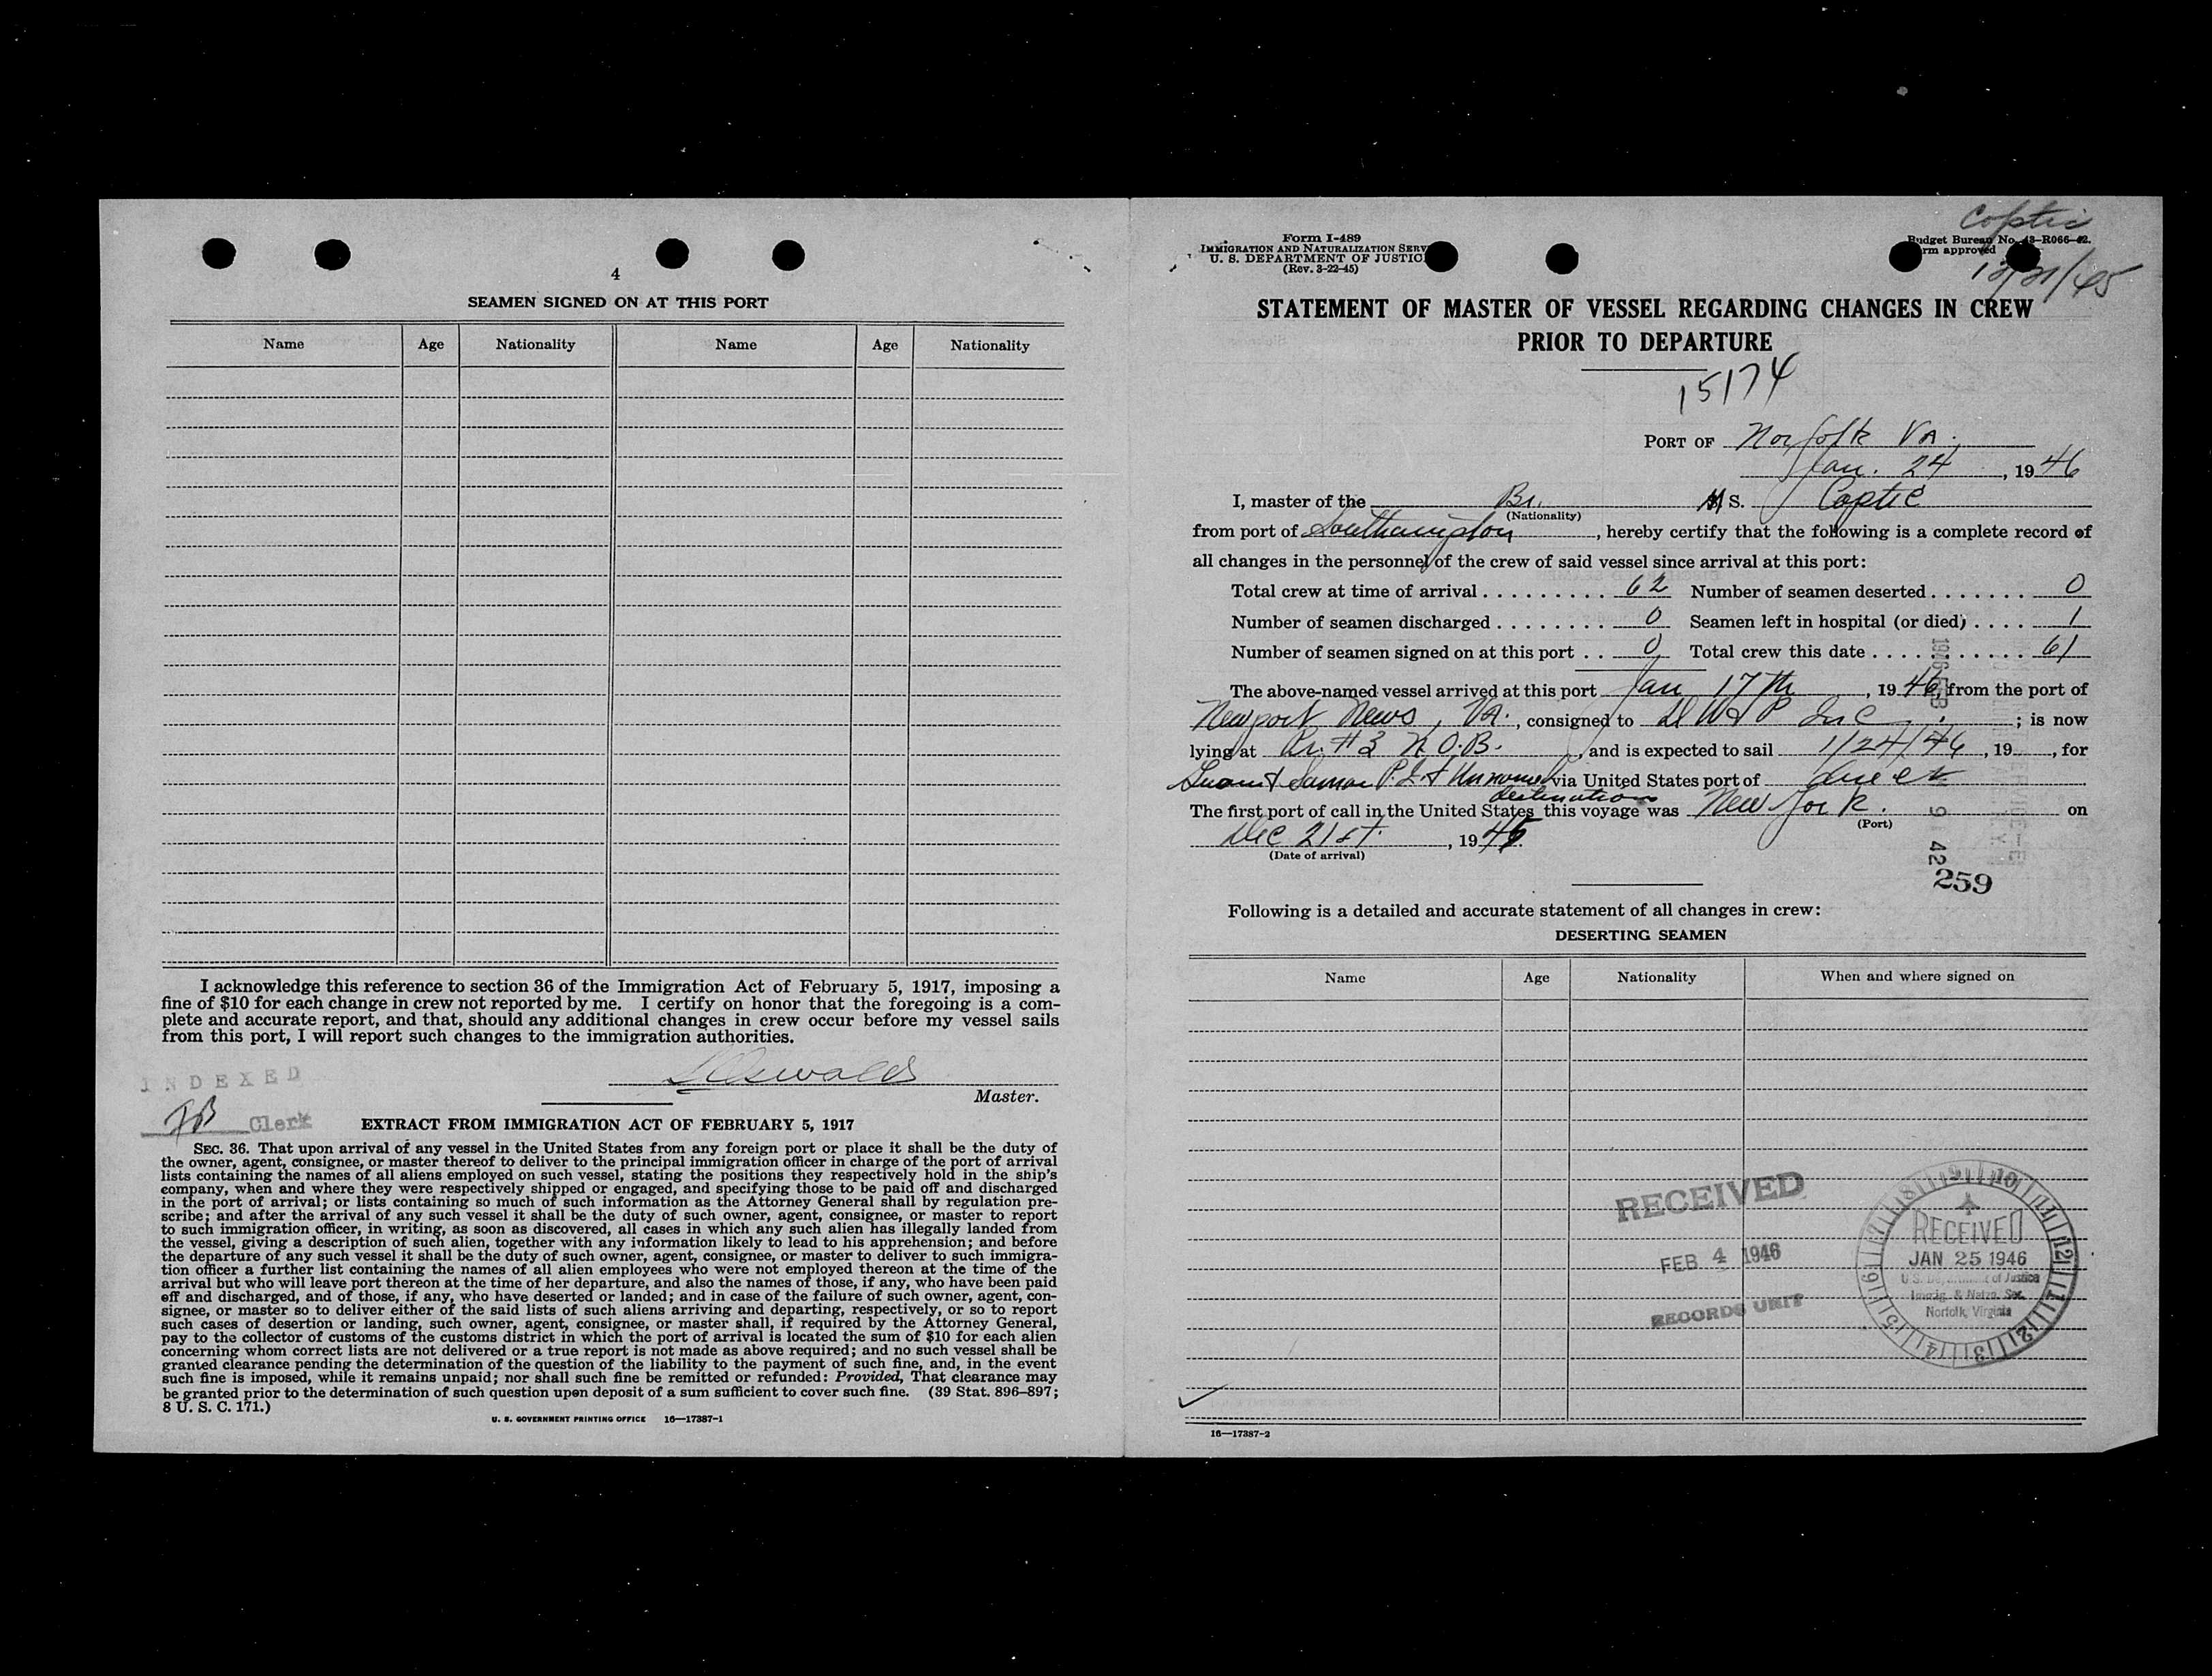 4
SEAMEN SIGNED ON AT THIS PORT
Name Age Nationality Name Age Nationality
I acknowledge this reference to section 36 of the Immigration Act of February 5, 1917, imposing a
fine of $10 for each change in crew not reported by me. I certify on honor that the foregoing is a com-
plete and accurate report, and that, should any additional changes in crew occur before my vessel sails
from this port, I will report such changes to the immigration authorities.
Oswald
Master.
INDEXED
Clerk
EXTRACT FROM IMMIGRATION ACT OF FEBRUARY 5, 1917
SEC. 36. That upon arrival of any vessel in the United States from any foreign port or place it shall be the duty of
the owner, agent, consignee, or master thereof to deliver to the principal immigration officer in charge of the port of arrival
lists containing the names of all aliens employed on such vessel, stating the positions they respectively hold in the ship's
company, when and where they were respectively shipped or engaged, and specifying those to be paid off and discharged
in the port of arrival; or lists containing so much of such information as the Attorney General shall by regulation pre-
scribe; and after the arrival of any such vessel it shall be the duty of such owner, agent, consignee, or master to report
to such immigration officer, in writing, as soon as discovered, all cases in which any such alien has illegally landed from
the vessel, giving a description of such alien, together with any information likely to lead to his apprehension; and before
the departure of any such vessel it shall be the duty of such owner, agent, consignee, or master to deliver to such immigra-
tion officer a further list containing the names of all alien employees who were not employed thereon at the time of the
arrival but who will leave port thereon at the time of her departure, and also the names of those, if any, who have been paid
off and discharged, and of those, if any, who have deserted or landed; and in case of the failure of such owner, agent, con-
signee, or master so to deliver either of the said lists of such aliens arriving and departing, respectively, or so to report
such cases of desertion or landing, such owner, agent, consignee, or master shall, if required by the Attorney General,
pay to the collector of customs of the customs district in which the port of arrival is located the sum of $10 for each alien
concerning whom correct lists are not delivered or a true report is not made as above required; and no such vessel shall be
granted clearance pending the determination of the question of the liability to the payment of such fine, and, in the event
such fine is imposed, while it remains unpaid; nor shall such fine be remitted or refunded: Provided, That clearance may
be granted prior to the determination of such question upon deposit of a sum sufficient to cover such fine. (39 Stat. 896–897;
8 U. S. C. 171.)
U. S. GOVERNMENT PRINTING OFFICE 16—17387-1
Coptic
Form I-489
IMMIGRATION AND NATURALIZATION SERV
U. S. DEPARTMENT OF JUSTIC
(Rev. 3-22-45)
Budget Bureau No. 43-R066-42.
rm approved
12/21/45
STATEMENT OF MASTER OF VESSEL REGARDING CHANGES IN CREW
PRIOR TO DEPARTURE
15174
PORT OF Norfolk VA.
Jan. 24, 1946
I, master of the Br. M S. Coptic
(Nationality)
from port of Southampton, hereby certify that the following is a complete record of
all changes in the personnel of the crew of said vessel since arrival at this port:
Total crew at time of arrival 62 Number of seamen deserted 0
Number of seamen discharged 0 Seamen left in hospital (or died) 1
Number of seamen signed on at this port 0 Total crew this date 61
The above-named vessel arrived at this port Jan 17th, 1946, from the port of
Newport News, VA., consigned to Inc.; is now
lying at Pr. #3 N.O.B., and is expected to sail 1/24/46, 19, for
Guam & Samar P.I. & Unknown via United States port of direct
destination
The first port of call in the United States this voyage was New York. on
(Port)
Dec 21st, 1945.
(Date of arrival)
1946 FEB 9 42
259
Following is a detailed and accurate statement of all changes in crew:
DESERTING SEAMEN
Name Age Nationality When and where signed on
RECEIVED
FEB 4 1946
RECORDS UNIT
1 2 3 4 5 6 7 8 9 10 11 12
RECEIVED
JAN 25 1946
U.S. Department of Justice
Immig. & Natzn. Ser.
Norfolk, Virginia
16—17387-2